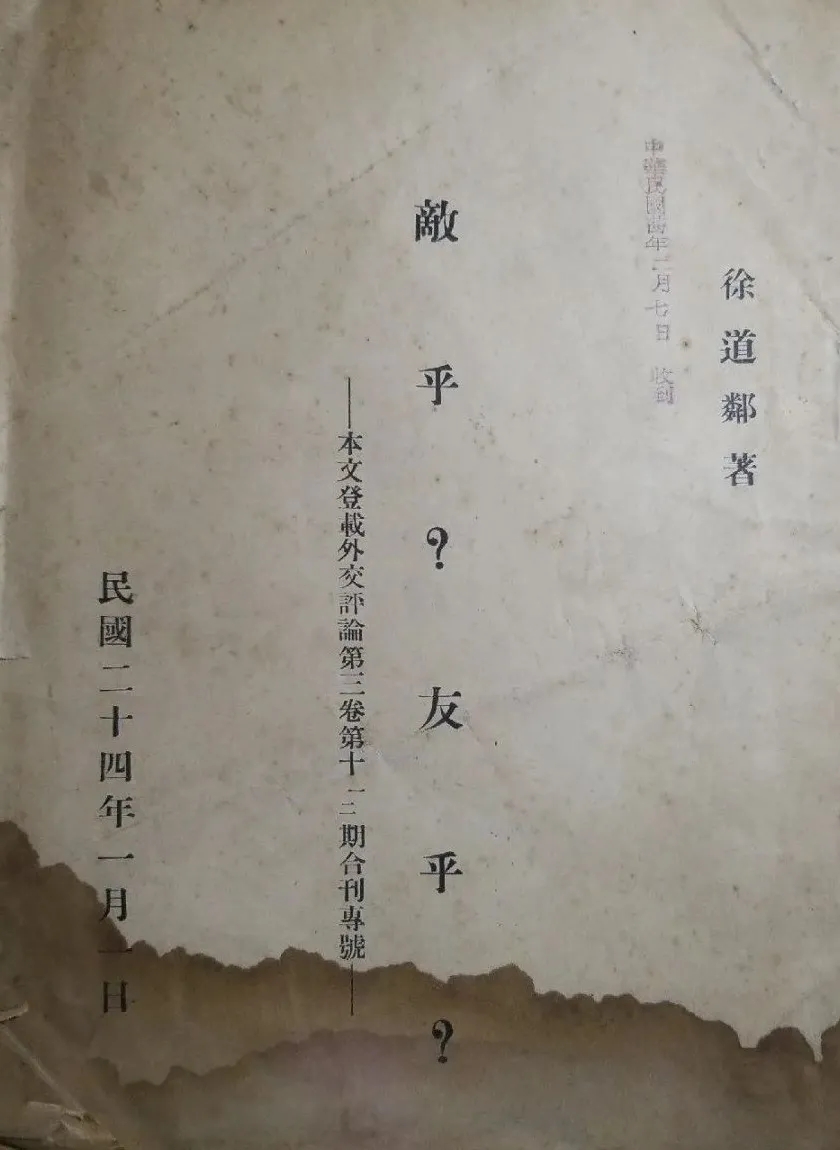 徐道鄰著
中華民國 年二月七日 收到
敵乎？友乎？
——本文登載外交評論第三卷第十一二期合刊專號——
民國二十四年一月一日